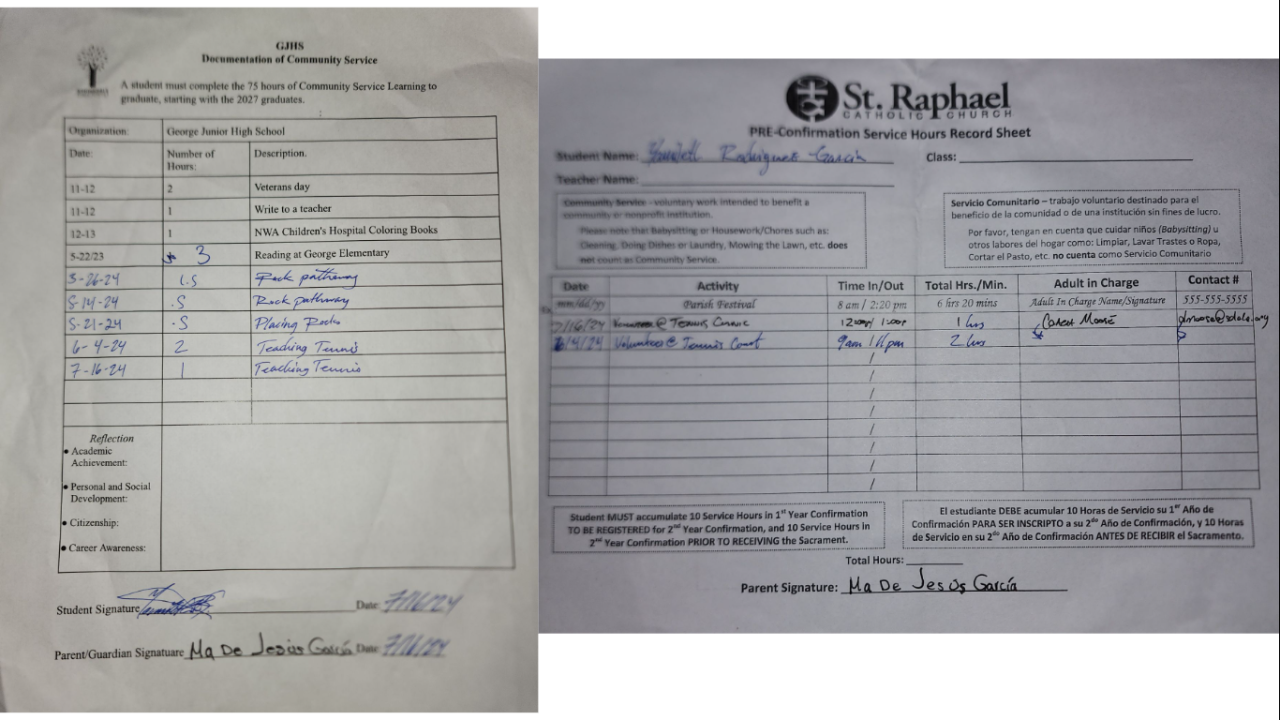 GJHS
Documentation of Community Service
A student must complete the 75 hours of Community Service Learning to
graduate, starting with the 2027 graduates.
Organization: George Junior High School
Date: Number of Hours: Description.
11-12 2 Veterans day
11-12 1 Write to a teacher
12-13 1 NWA Children's Hospital Coloring Books
5-22/23 3 Reading at George Elementary
3-26-24 1.5 Rock pathway
5-14-24 .5 Rock pathway
5-21-24 .5 Placing Rocks
6-4-24 2 Teaching Tennis
7-16-24 1 Teaching Tennis
Reflection
• Academic
Achievement:
• Personal and Social
Development:
• Citizenship:
• Career Awareness:
Student Signature Date: 7/16/24
Parent/Guardian Signatuare Ma De Jesús García Date: 7/16/24
St. Raphael
CATHOLIC CHURCH
PRE-Confirmation Service Hours Record Sheet
Student Name: Rodriguez Garcia Class:
Teacher Name:
Community Service - voluntary work intended to benefit a
community or nonprofit institution.
Please note that Babysitting or Housework/Chores such as:
Cleaning, Doing Dishes or Laundry, Mowing the Lawn, etc. does
not count as Community Service.
Servicio Comunitario – trabajo voluntario destinado para el
beneficio de la comunidad o de una institución sin fines de lucro.
Por favor, tengan en cuenta que cuidar niños (Babysitting) u
otros labores del hogar como: Limpiar, Lavar Trastes o Ropa,
Cortar el Pasto, etc. no cuenta como Servicio Comunitario
Date Activity Time In/Out Total Hrs./Min. Adult in Charge Contact #
mm/dd/yy Parish Festival 8 am / 2:20 pm 6 hrs 20 mins Adult In Charge Name/Signature 555-555-5555
7/16/24 @ Tennis 12:00pm/ 1:00pm 1 hrs
6/4/24 @ Tennis Court 9am / 11pm 2 hrs
/
/
/
/
/
/
/
/
Student MUST accumulate 10 Service Hours in 1st Year Confirmation
TO BE REGISTERED for 2nd Year Confirmation, and 10 Service Hours in
2nd Year Confirmation PRIOR TO RECEIVING the Sacrament.
El estudiante DEBE acumular 10 Horas de Servicio su 1er Año de
Confirmación PARA SER INSCRIPTO a su 2do Año de Confirmación, y 10 Horas
de Servicio en su 2do Año de Confirmación ANTES DE RECIBIR el Sacramento.
Total Hours:
Parent Signature: Ma De Jesús García